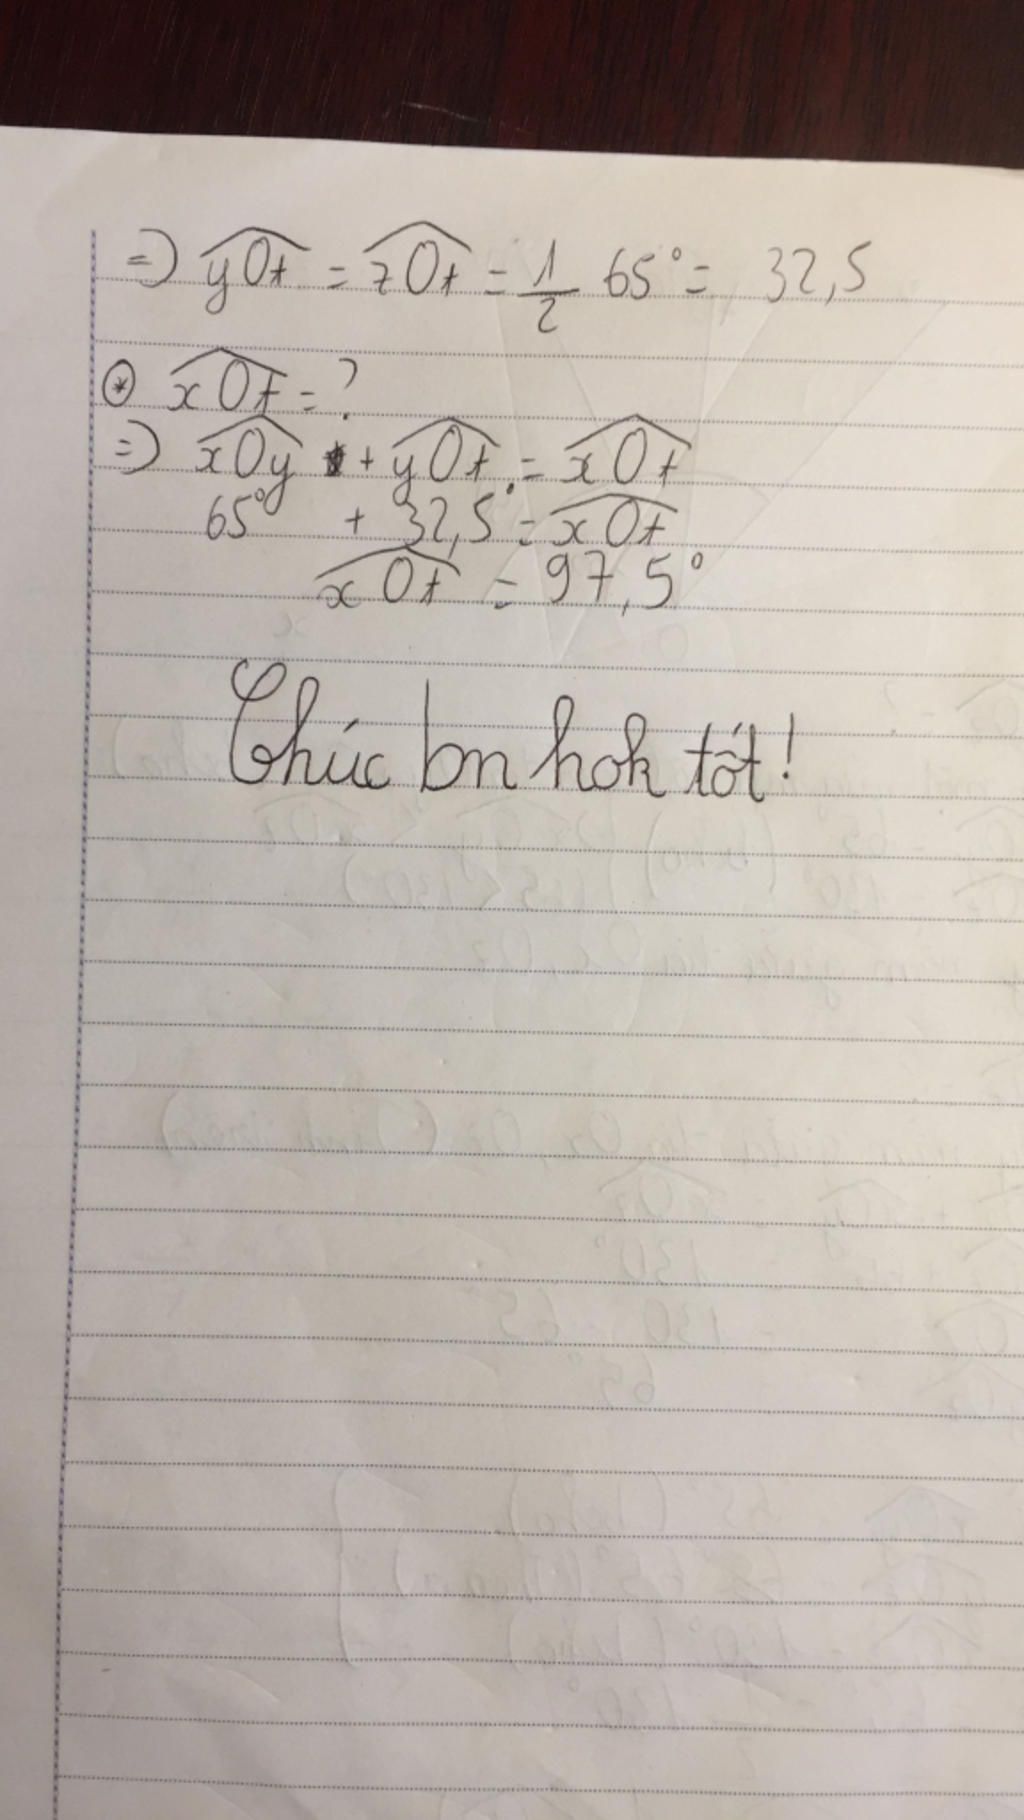 => yOt = zOt = 1/2 65° = 32,5
⊛ xOt = ?
=> xOy + yOt = xOt
65° + 32,5° = xOt
xOt = 97,5°
Chúc bn hok tốt!